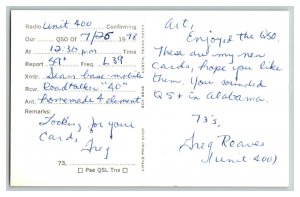 Radio Unit 400 Confirming
Our QSO Of 7/26 1978
At 12:30 p.m Time
Report 59+ Freq. L39
Xmtr Sears base-mobile
Rcvr. Roadtalker "40"
Ant. homemade 4 element
Remarks:
Looking for your
Card, Greg
73,
Pse QSL Tnx
Art,
Enjoyed the QSO
These are my new
Cards, hope you like
them. You sounded
QS+ in Alabama.
73's,
Greg Reaves
(Unit 400)